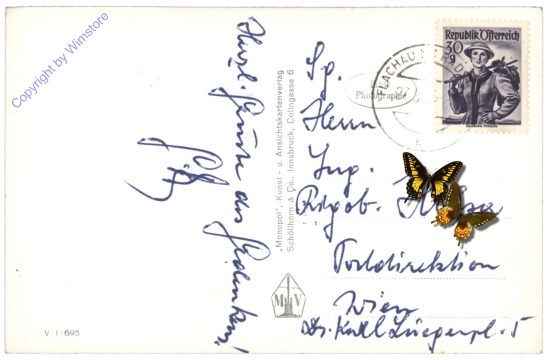 Copyright by Wimstore
Herzl. Grüsse des Gedenkens!
"Monopol", Kunst- u. Ansichtskartenverlag
Schöllhorn & Co., Innsbruck, Colingasse 6
MV
V 1-695
Republik Österreich
30
g
FLACHAU
Photographie
Herrn
Ing.
Postdirektion
Wien
Dr. Karl Luegerpl. 5